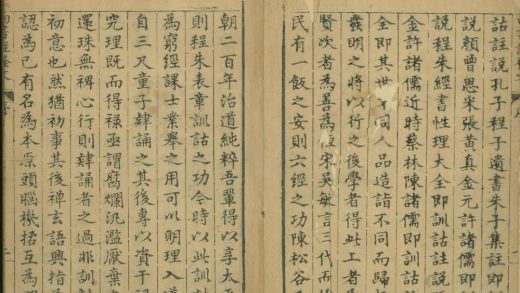 詁註說孔子程子遺書朱子集註即
說顏曾思米張黄真金元許諸儒即
說程朱經書性理大全即訓詁註說
金許諸儒近時蔡林陳諸儒即訓詁
全即其世不同人品造詣不同而歸
發明之將以行之後學者得此工者
賢次者為善為恆宋吳敏言三代而
民有一飯之安則六經之功陳松谷
朝二百年治道純粹吾輩得以享太
則程朱表章訓詁之功今時以此訓
為窮經課士業舉之用可以明理入
自三尺童子肄誦之其後專以資干
究理既而得祿亟謂腐爛汎濫厭棄
還珠無裨心行則肄誦者之過非訓
初意也然猶初事其後禪玄語興指
認為已有名為本原頭腦機括互為
序